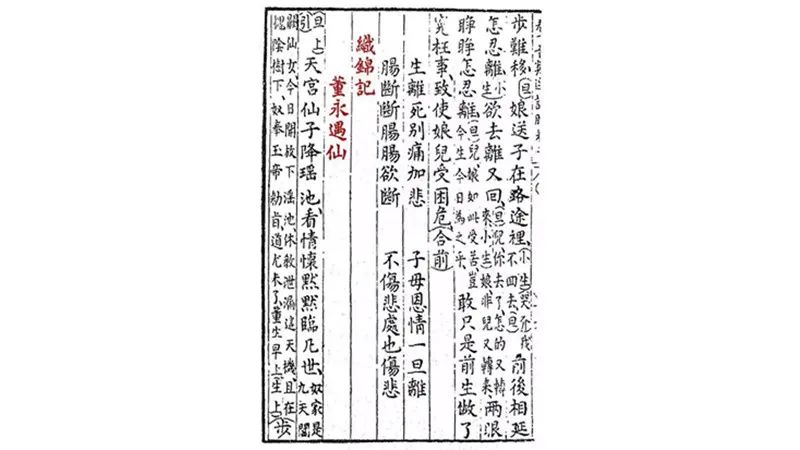 步難移(旦)娘送子在路途裡(小生)哭死我前後相延
怎忍離(小生)欲去離又回(旦)兒你去了怎的又轉來(小生)娘非兒又轉來兩眼
睜睜怎忍離今生今日為之乎(旦)兒娘如此受苦豈敢只是前生做了
冤枉事致使娘兒受困危(合前)
生離死別痛加悲 子母恩情一旦離
腸斷斷腸腸欲斷 不傷悲處也傷悲
織錦記
董永遇仙
(旦上)引天宮仙子降瑤池看情懷默默臨凡世奴家是九天闕
仙女今日閣赦下瑤池休教泄漏這天機且在
槐陰樹下奴奉玉帝勅旨道尤未了董生早上(生上)步